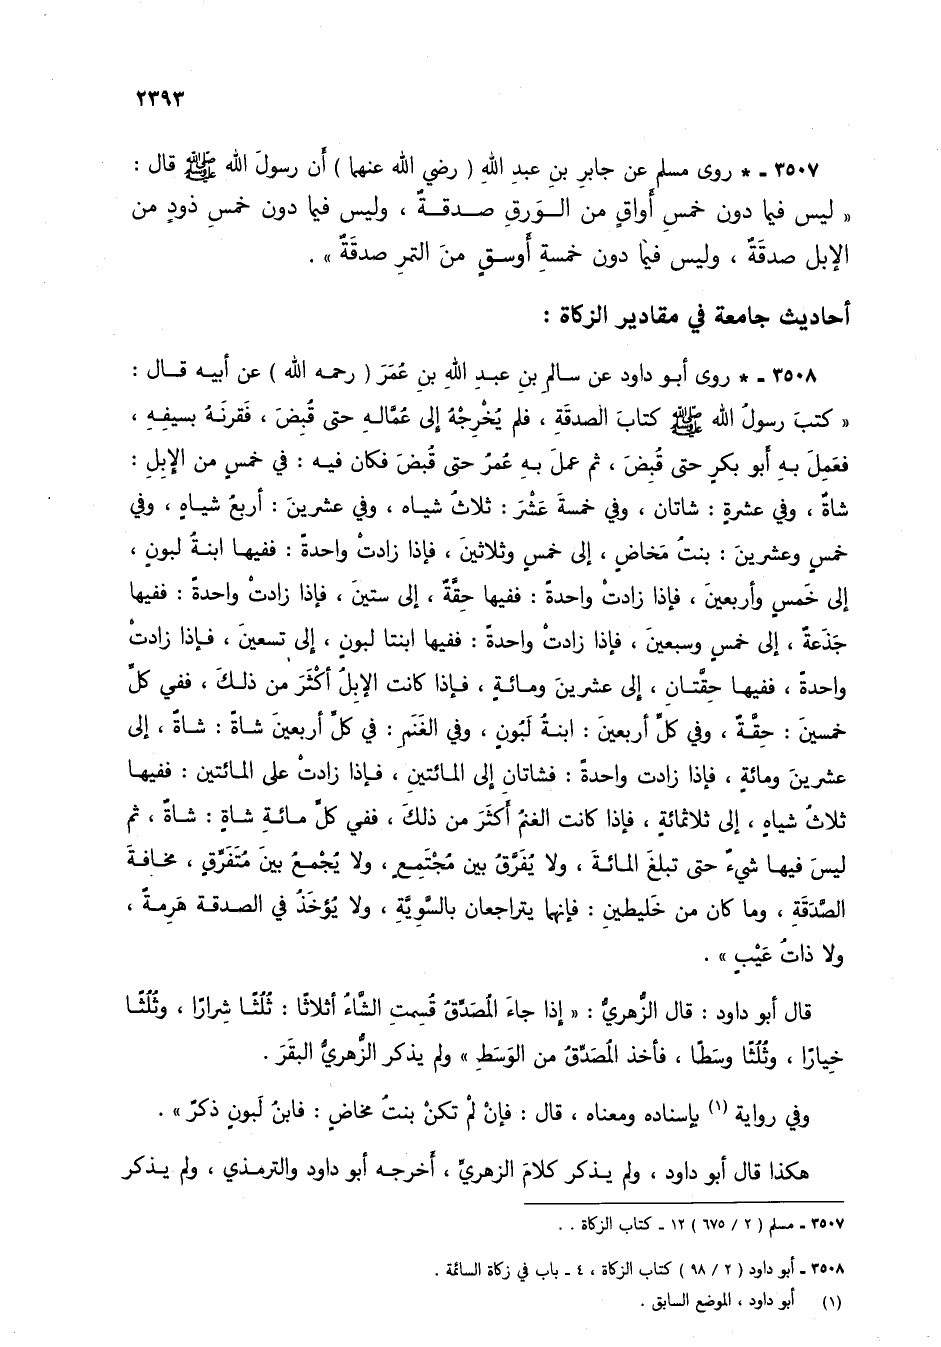 ٢٣٩٣
٣٥٠٧ - * روى مسلم عن جابرِ بنِ عبدِ اللهِ ( رضي الله عنهما ) أن رسولَ الله ﷺ قال :
« ليس فيما دون خمسِ أَواقٍ من الوَرِقِ صدقةٌ ، وليس فيما دون خمسِ ذودٍ من
الإبل صدقَةٌ ، وليس فيما دون خمسةِ أَوسقٍ منَ التمرِ صدقَةٌ » .
أحاديث جامعة في مقادير الزكاة :
٣٥٠٨ - * روى أبو داود عن سالمِ بنِ عبدِ اللهِ بنِ عُمَرَ ( رحمه الله ) عن أبيه قال :
« كتبَ رسولُ الله ﷺ كتابَ الصدقَةِ ، فلم يُخْرِجْهُ إلى عمَّالهِ حتى قُبِضَ ، فَقرنَهُ بسيفهِ ،
فعَمِلَ بهِ أبو بكرٍ حتى قُبضَ ، ثم عملَ بهِ عُمرُ حتى قُبضَ فكان فيه : في خمسٍ من الإبلِ :
شاةٌ ، وفي عشرةٍ : شاتان ، وفي خمسةَ عَشْرَ : ثلاثُ شياه ، وفي عشرينَ : أربعُ شياهٍ ، وفي
خمسٍ وعشرينَ : بنتُ مَخاضٍ ، إلى خمسٍ وثلاثينَ ، فإذا زادتْ واحدةً : ففيها ابنةُ لبونٍ ،
إلى خَمسٍ وأربعينَ ، فإذا زادتْ واحدةً : ففيها حِقَّةٌ ، إلى ستينَ ، فإذا زادتْ واحدةً : ففيها
جَذَعةٌ ، إلى خمسٍ وسبعينَ ، فإذا زادتْ واحدةً : ففيها ابنتا لبونٍ ، إلى تسعينَ ، فإذا زادتْ
واحدةً ، ففيها حِقَّتانِ ، إلى عشرينَ ومائةٍ ، فإذا كانت الإبلُ أكْثَرَ من ذلكَ ، ففي كلِّ
خمسينَ : حِقَّةٌ ، وفي كلِّ أربعينَ : ابنةُ لَبُونٍ ، وفي الغَنَمِ : في كلِّ أربعينَ شاةً : شاةٌ ، إلى
عشرينَ ومائةٍ ، فإذا زادت واحدةً : فشاتان إلى المائتينِ ، فإذا زادتْ على المائتين : ففيها
ثلاثُ شياهٍ ، إلى ثلاثمائةٍ ، فإذا كانت الغنمُ أكثَرَ من ذلكَ ، ففي كلِّ مائةِ شاةٍ : شاةٌ ، ثم
ليسَ فيها شيءٌ حتى تبلغَ المائةَ ، ولا يُفَرَّقُ بين مُجْتَمِعٍ ، ولا يُجْمعُ بينَ مُتَفَرِّقٍ ، مخافةَ
الصَّدَقَةِ ، وما كان من خَليطينِ : فإنهما يتراجعان بالسَّوِيَّةِ ، ولا يُؤخَذُ في الصدقة هَرِمةٌ ،
ولا ذاتُ عَيْبٍ » .
قال أبو داود : قال الزُّهريُّ : « إذا جاءَ المُصَدِّقُ قُسِمتِ الشَّاءُ أثلاثًا : ثُلُثًا شِرارًا ، وثُلُثًا
خيارًا ، وثُلُثًا وسَطًا ، فأخذ المُصَدِّقُ من الوَسَطِ » ولم يذكر الزُّهريُّ البقَرَ .
وفي رواية (١) بإسناده ومعناه ، قال : فإنْ لمْ تكنْ بنتُ مخاضٍ : فابنُ لَبونٍ ذكرٌ » .
هكذا قال أبو داود ، ولم يذكر كلامَ الزهريِّ ، أخرجه أبو داود والترمذي ، ولم يذكر
٣٥٠٧ - مسلم ( ٢ / ٦٧٥ ) ١٢ - كتاب الزكاة . .
٣٥٠٨ - أبو داود ( ٢ / ٩٨ ) كتاب الزكاة ، ٤ - باب في زكاة السائمة .
(١) أبو داود ، الموضع السابق .